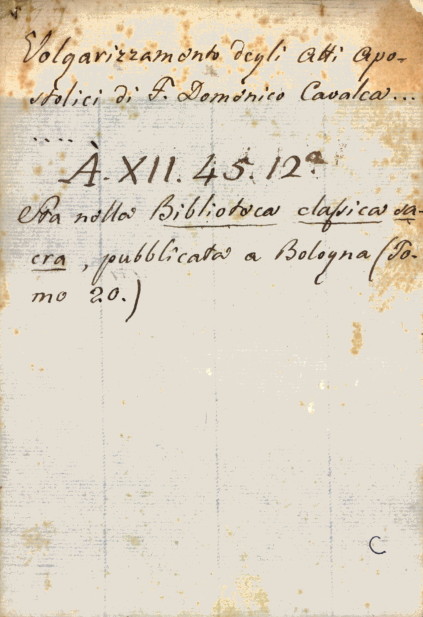 Volgarizzamento degli Atti Apo-
stolici di F. Domenico Cavalca...
....
À. XII. 45. 12ª.
Sta nella Biblioteca classica sa-
cra, pubblicata a Bologna (To-
mo 20.)
C